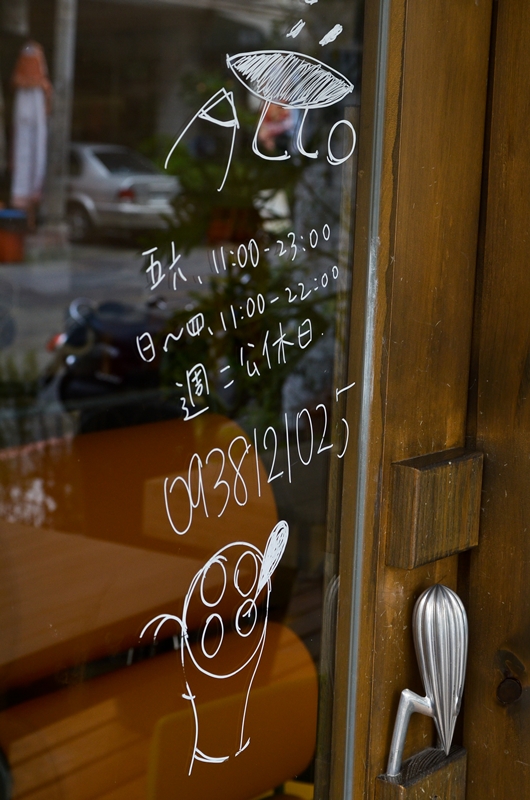 Allo
五六、11:00-23:00
日~四、11:00-22:00
週二公休日.
0938121025